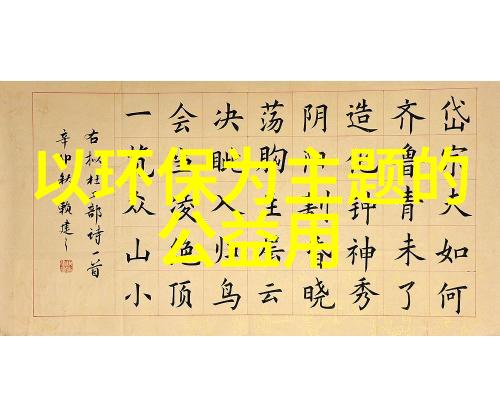 以环保为主题的
公益用
岱宗夫如何
齐鲁青未了
造化钟神秀
阴阳割昏晓
荡胸生层云
决眦入归鸟
会当凌绝顶
一览众山小
右拟杜工部诗一首
辛卯秋赖建